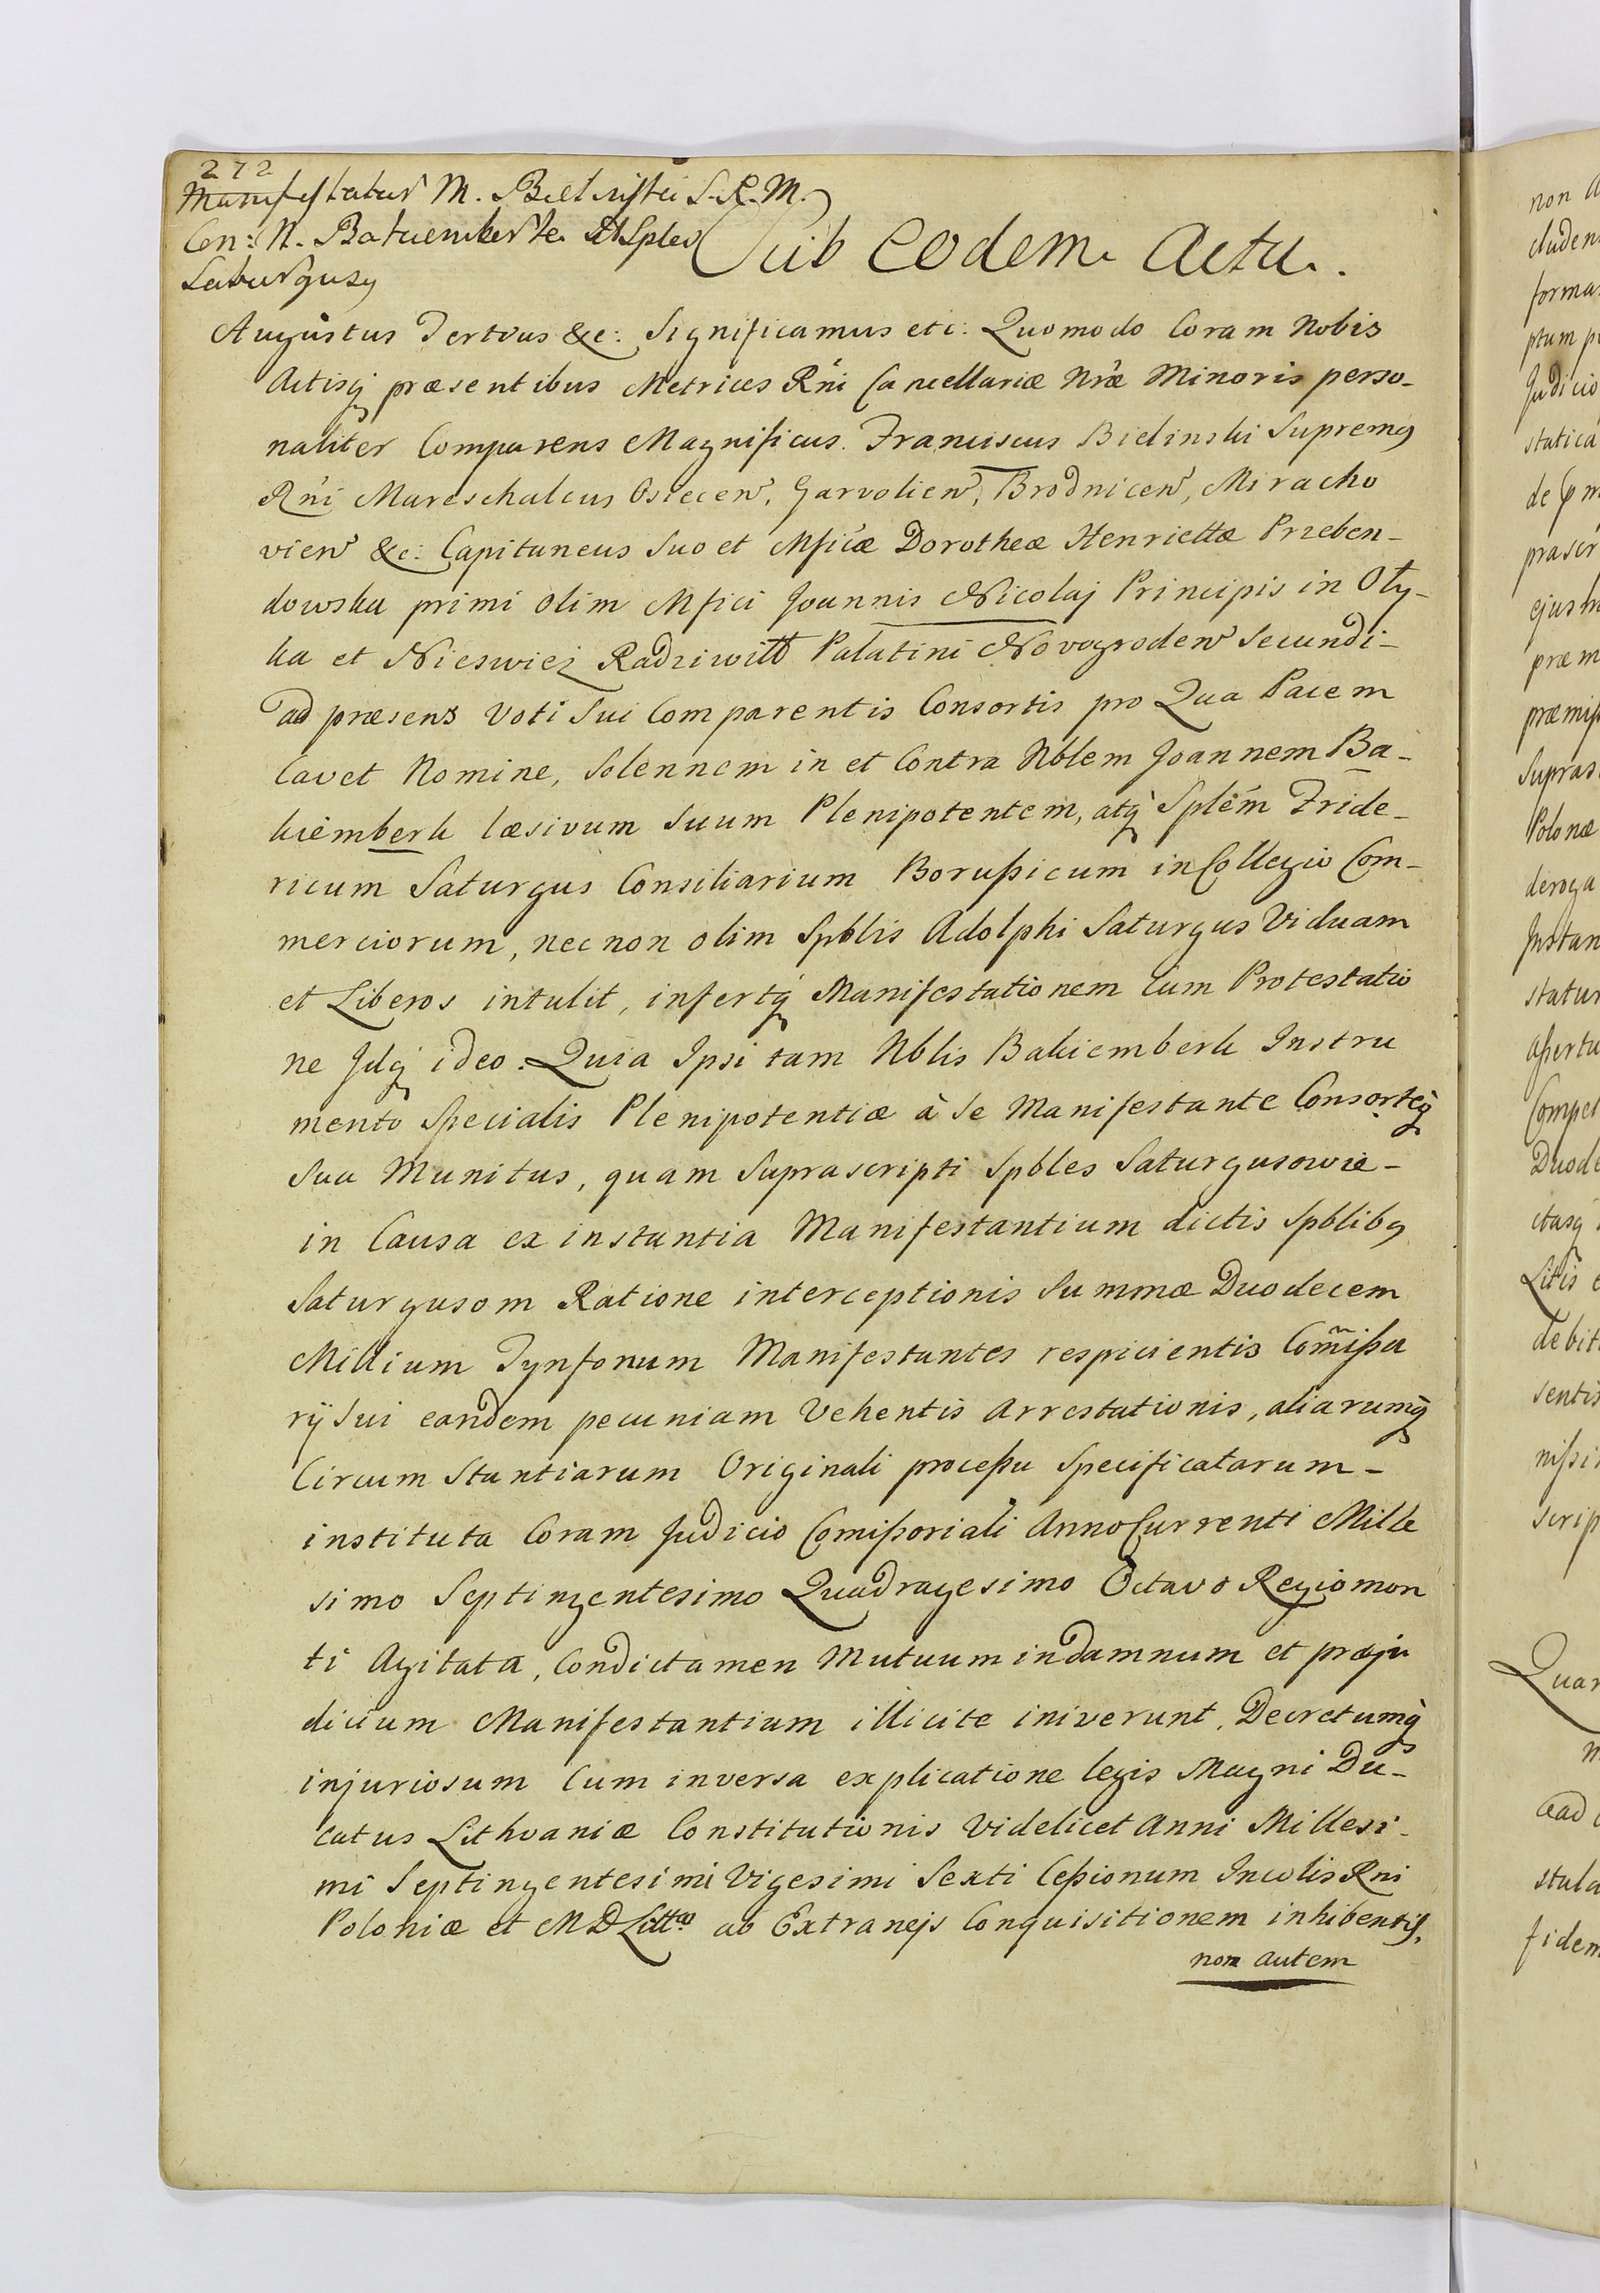 272
Manifestatur M. Bielinski S. R. M.
Con: N. Bakiemberk Et Sples
Saturgusy
Sub Eodem Actu.
Augustus Tertius &c: Significamus etc: Quomodo Coram Nobis
Actisq præsentibus Metrices Rñi Cancellariæ Nræ Minoris perso-
naliter Comparens Magnificus Franciscus Bielinski Supremq
Rñi Mareschalcus Osiecen, Garvolien, Brodnicen, Miracho
vien &c: Capitaneus Suo et Mficæ Dorotheæ Henriettæ Przeben-
dowska primi olim Mfici Joannis Nicolaj Principis in Oły-
ka et Nieswiez Radziwiłł Palatini Novogroden Secundi-
ad præsens Voti Sui Comparentis Consortis pro Qua Pacem
Cavet Nomine, Solennem in et Contra Nblem Joannem Ba-
kiemberk læsivum Suum Plenipotentem, atq Splem Fride-
ricum Saturgus Consiliarium Borussicum in Collegio Com-
merciorum, nec non olim Spblis Adolphi Saturgus Viduam
et Liberos intulit, infertq Manifestationem Cum Protestatio
ne Jdq ideo. Quia Ipsi tam Nblis Bakiemberk Instru
mento Specialis Plenipotentiæ à Se Manifestante Consorteq
Sua Munitus, quam Suprascripti Spbles Saturgusowie-
in Causa ex instantia Manifestantium dictis Spblibq
Saturgusom Ratione interceptionis Summæ Duodecem
Millium Tynfonum Manifestantes respicientis Com̃issa
rij Sui eandem pecuniam Vehentis Arrestationis, aliarumq
Circumstantiarum Originali processu Specificatarum-
instituta Coram Judicio Comissoriali Anno Currenti Mille
simo Septingentesimo Quadragesimo Octavo Regiomon
ti Agitata, Condictamen Mutuum in damnum et præju
dicium Manifestantium illicite iniverunt, Decretumq
injuriosum Cum inversa explicatione legis Magni Du-
catus Lithvaniæ Constitutionis Videlicet Anni Millesi-
mi Septingentesimi Vigesimi Sexti Cessionum Incolis Rni
Poloniæ et M D Litt ab Extranejs Conquisitionem inhibentis,
non autem